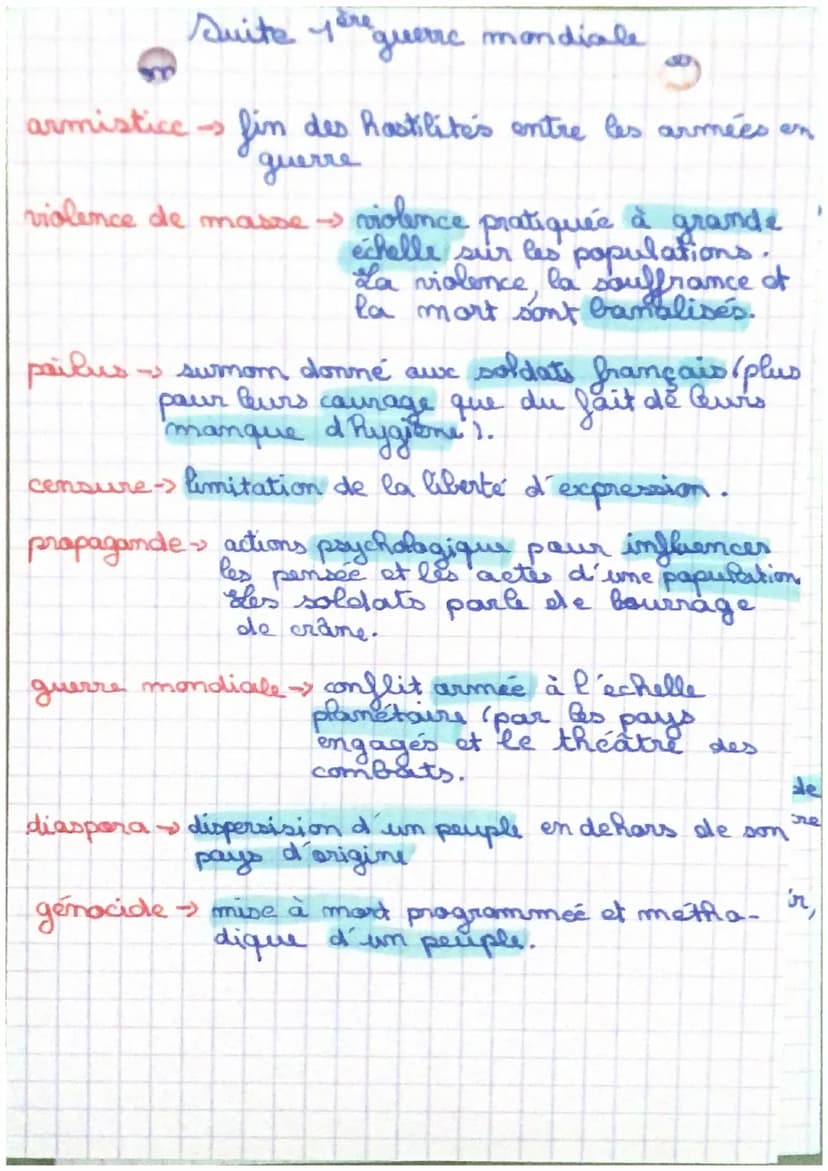 Suite 1ère guerre mondiale
armistice → fin des hostilités entre les armées en
guerre
violence de masse → violence pratiquée à grande
échelle sur les populations.
La violence, la souffrance et
la mort sont banalisés.
poilus → surnom donné aux soldats français (plus
pour leurs courage que du fait de leurs
manque d'hygiène).
censure → limitation de la liberté d'expression.
propagande → actions psychologique pour influencer
les pensée et les actes d'une population
Les soldats parle de bourrage
de crâne.
guerre mondiale → conflit armée à l'echelle
planétaire (par les pays
engagés et le théâtre des
combats.
de
diaspora → dispersision d'un peuple en dehors de son
re
pays d'origine
génocide → mise à mort programmeé et métho-
ir,
dique d'un peuple.